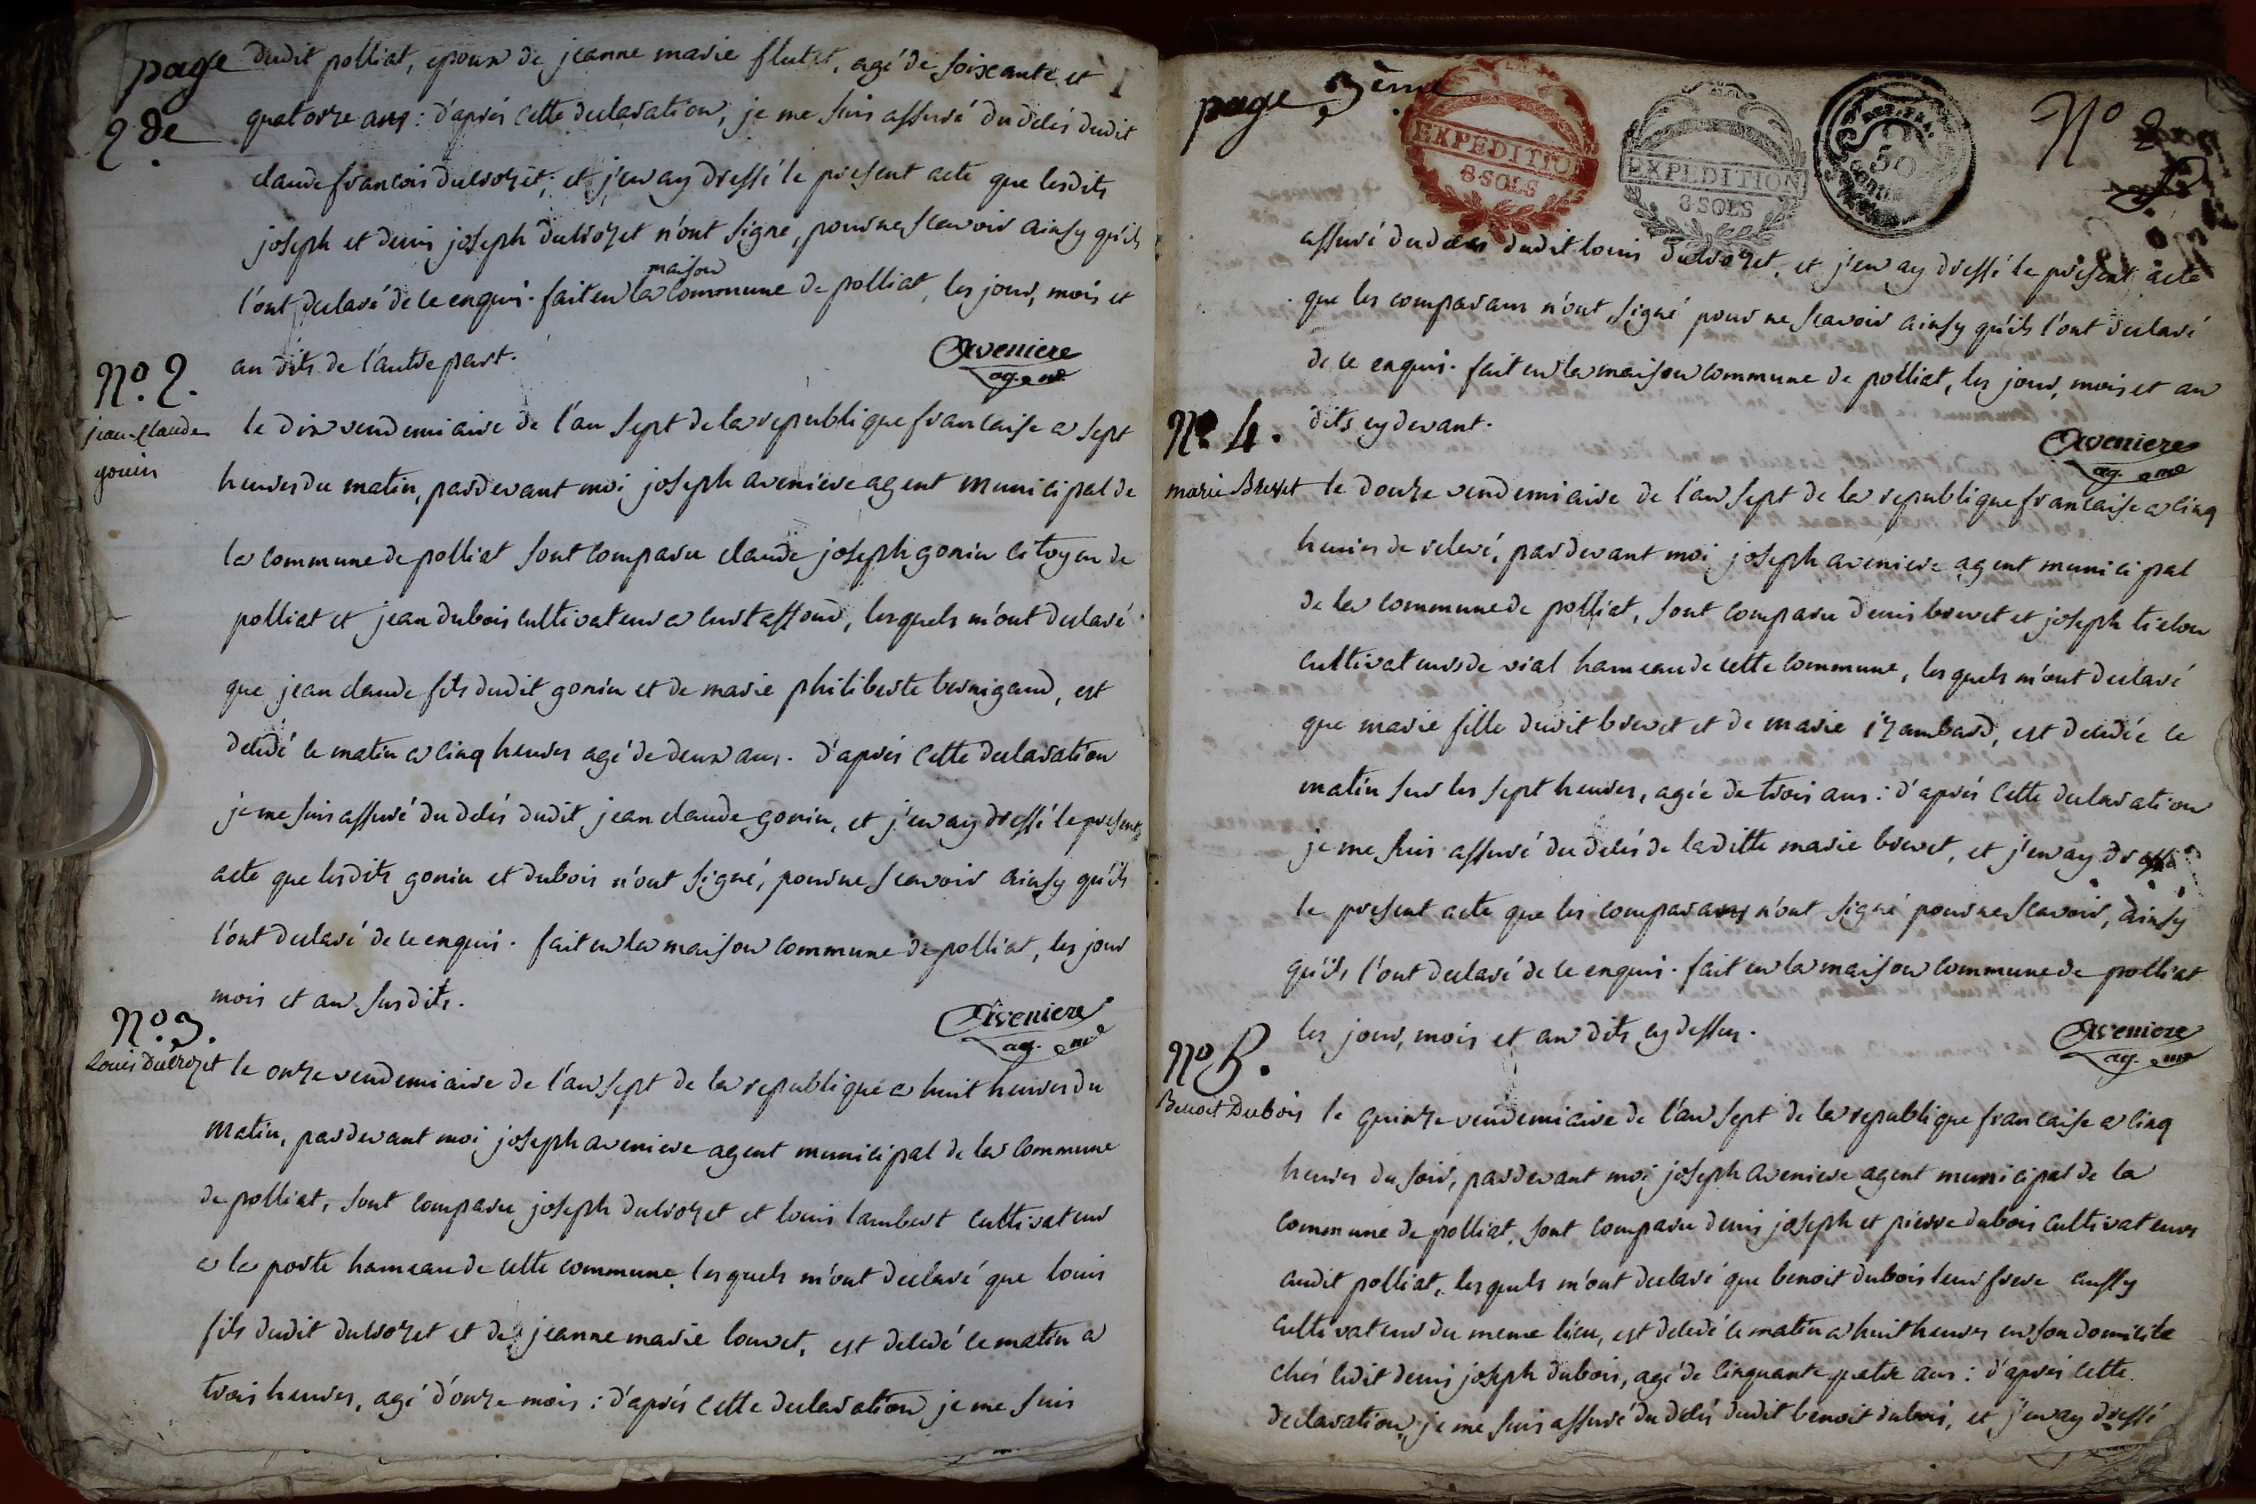 page 2de
dudit polliat, epoux de jeanne marie flutet, agé de soixante et
quatorze ans : d'aprés cette declaration, je me suis assuré du delés dudit
claude francois ducrozet, et j'en ay dressé le present acte que lesdits
joseph et denis joseph ducrozet n'ont signé, pour ne scavoir ainsy qu'ils
l'ont declaré de ce enquis. fait en la maison commune de polliat, les jour, mois et
an dits de l'autre part.
Aveniere
ag. m.
No. 2.
jean-claude
gonin
le dix vendemiaire de l'an sept de la republique francaise a sept
heures du matin, pardevant moi joseph aveniere agent municipal de
la commune de polliat sont comparu claude joseph gonin citoyen de
polliat et jean dubois cultivateur a curtaffond, lesquels m'ont declaré
que jean claude fils dudit gonin et de marie philiberte bernigaud, est
deledé ce matin a cinq heures agé de deux ans. d'aprés cette declaration
je me suis assuré du delés dudit jean claude gonin, et j'en ay dressé le present
acte que lesdits gonin et dubois n'ont signé, pour ne scavoir ainsy qu'ils
l'ont declaré de ce enquis. fait en la maison commune de polliat, les jour
mois et an susdits.
Aveniere
ag. m.
No. 3.
Louis Ducrozet
le onze vendemiaire de l'an sept de la republique a huit heures du
matin, pardevant moi joseph aveniere agent municipal de la commune
de polliat, sont comparu joseph ducrozet et louis lambert cultivateur
a la poste hameau de cette commune, lesquels m'ont declaré que louis
fils dudit ducrozet et de jeanne marie louvet, est deledé ce matin a
trois heures, agé d'onze mois : d'aprés cette declaration je me suis
page 3eme
EXPEDITION
8 SOLS
EXPEDITION
8 SOLS
50
No 2
assuré du deces dudit louis ducrozet, et j'en ay dressé le present acte
que les comparans n'ont signé pour ne scavoir ainsy qu'ils l'ont declaré
de ce enquis. fait en la maison commune de polliat, les jour, mois et an
dits cy devant.
Aveniere
ag. m.
No. 4.
marie Brevet
le douze vendemiaire de l'an sept de la republique francaise a cinq
heures de relevé, pardevant moi joseph aveniere agent municipal
de la commune de polliat, sont comparu denis brevet et joseph
cultivateurs de vial hameau de cette commune, lesquels m'ont declaré
que marie fille dudit brevet et de marie izambard, est deledée ce
matin sur les sept heures, agée de trois ans : d'aprés cette declaration
je me suis assuré du delés de laditte marie brevet, et j'en ay dressé
le present acte que les comparans n'ont signé pour ne scavoir, ainsy
qu'ils l'ont declaré de ce enquis. fait en la maison commune de polliat
les jour, mois et an dits cy dessus.
Aveniere
ag. m.
No 5.
Benoit Dubois
le quinze vendemiaire de l'an sept de la republique francaise a cinq
heures du soir, pardevant moi joseph aveniere agent municipal de la
commune de polliat, sont comparu denis joseph et pierre dubois cultivateurs
audit polliat, lesquels m'ont declaré que benoit dubois leur frere aussy
cultivateur du meme lieu, est deledé ce matin a huit heures en son domicile
chés ledit denis joseph dubois, agé de cinquante quatre ans : d'aprés cette
declaration, je me suis assuré du delés dudit benoit dubois, et j'en ay dressé